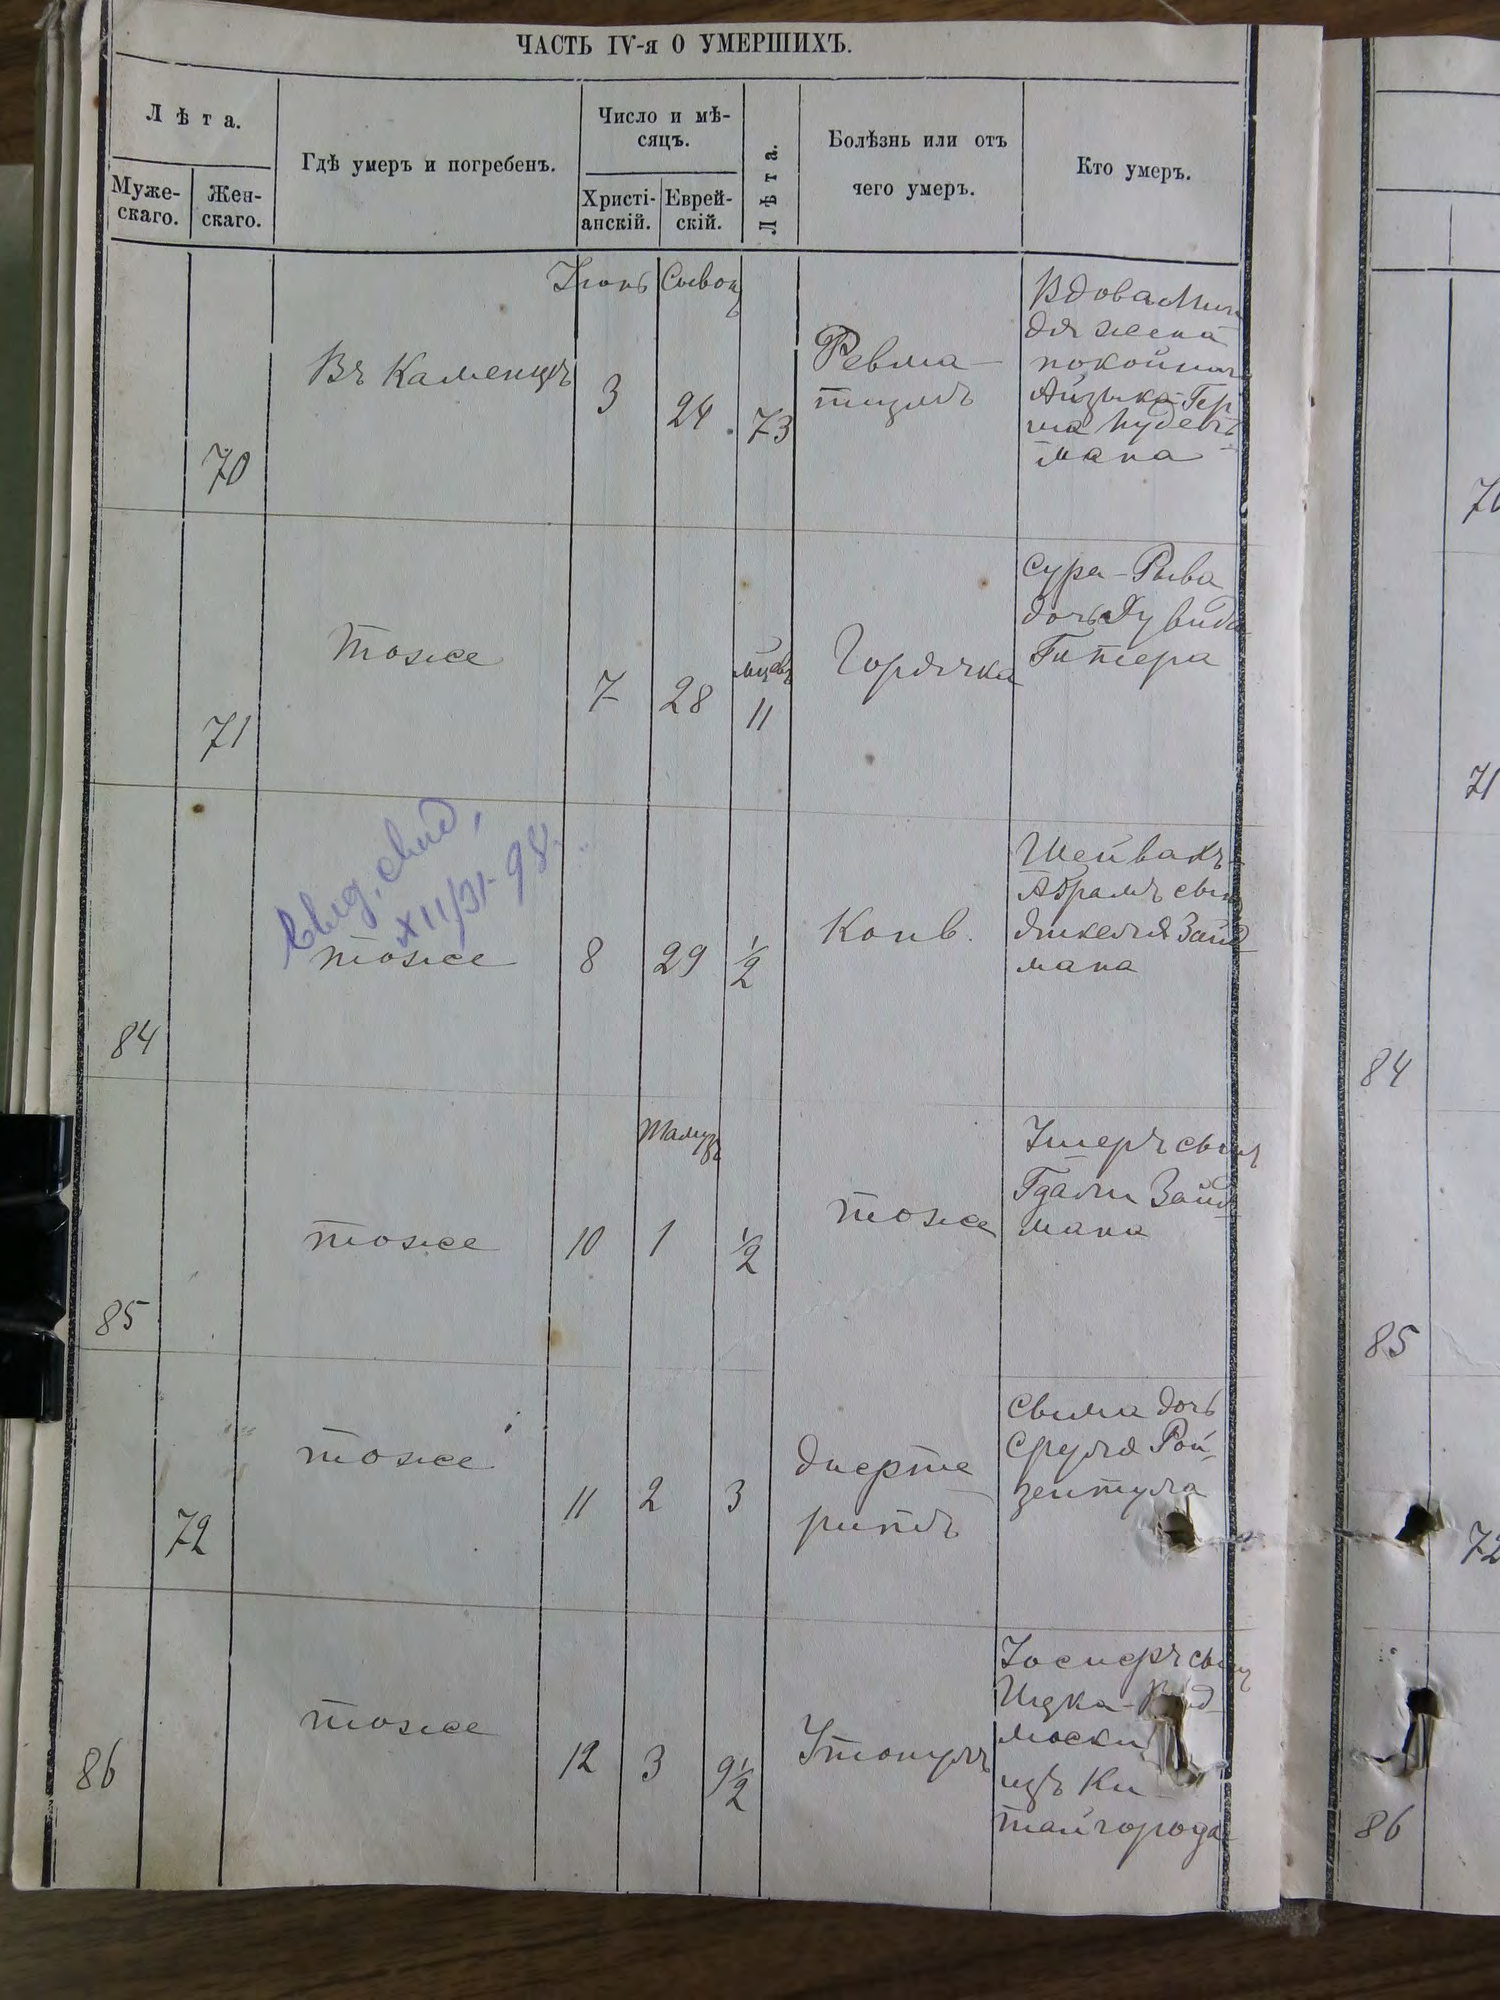 ЧАСТЬ IV-я О УМЕРШИХЪ.
Лѣта.
Муже-
скаго.
Жен-
скаго.
Гдѣ умеръ и погребенъ.
Число и мѣ-
сяцъ.
Христі-
анскій.
Еврей-
скій.
Лѣта.
Болѣзнь или отъ
чего умеръ.
Кто умеръ.
70
Въ Каменцѣ
Іюнь
3
Сывонъ
24
73
Ревма-
тизмъ
Вдова Мин
дя жена
покойнаго
Айзыка-Гер
ша
мана
71
тоже
7
28
мцевъ
11
Горячка
Сура-Рыва
дочь Дувида
84
тоже
Выд. свид.
XII/31-98
8
29
1/2
Конв.
Шейвахъ-
Абрамъ сынъ
Янкеля Зайд
мана
85
тоже
10
Тамузъ
1
1/2
тоже
Ушеръ сынъ
Гдали Зайд
мана
72
тоже
11
2
3
дифте
ритъ
Сыма дочь
Сруля Рой-
зентула
86
тоже
12
3
9 1/2
Утонулъ
Іосифъ сынъ
Ицка-
изъ Ки
тайгорода
70
71
84
85
72
86